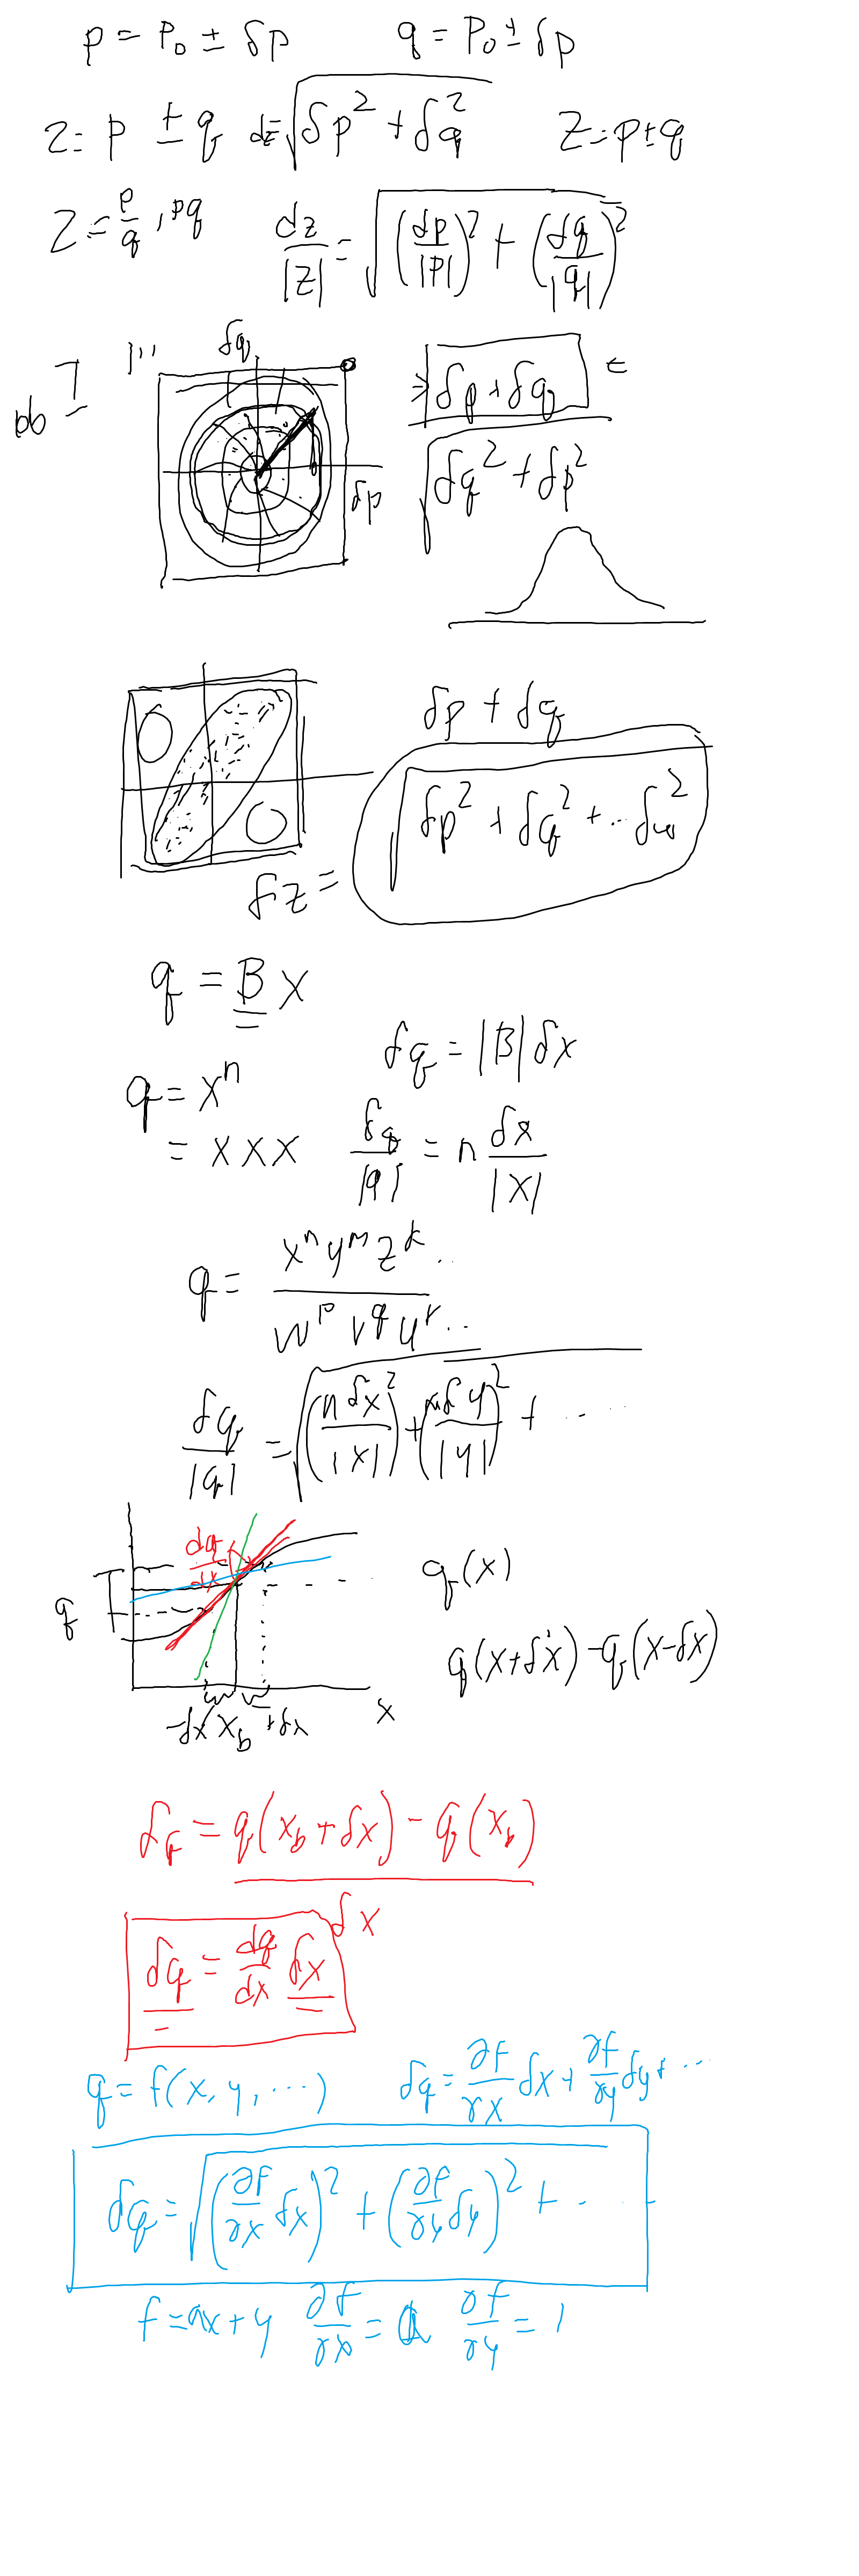 p = P₀ ± δp q = P₀ ± δp
z = p ± q dz = √(δp² + δq²) Z = p ± q
Z = p/q , pq dz/|z| = √((dp/|p|)² + (dq/|q|)²)
δq
δp + δq
δp
√(δq² + δp²)
δp + δq
δz = √(δp² + δq² + ... δw²)
q = B x
δq = |B| δx
q = xⁿ
= x x x δq/|q| = n δx/|x|
q = xⁿ yᵐ zᵏ .. / wᵖ v^q uʳ ..
δq/|q| = √((n δx/|x|)² + (m δy/|y|)² + ...
dq/dx
q
q(x)
q(x+δx) - q(x-δx)
-δx x_b +δx x
δq = q(x_b + δx) - q(x_b)
δx
δq = dq/dx δx
q = f(x, y, ...) δq = ∂f/∂x δx + ∂f/∂y δy + ...
δq = √((∂f/∂x δx)² + (∂f/∂y δy)² + ...
f = ax + y ∂f/∂x = a ∂f/∂y = 1